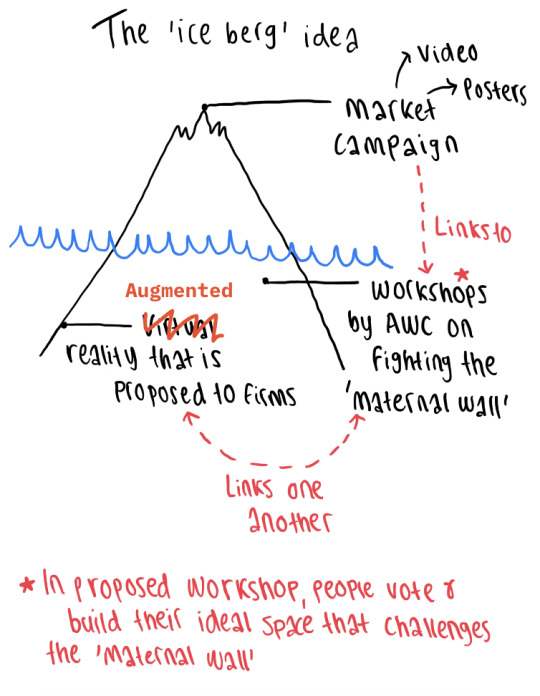 The 'ice berg' idea
Video
Posters
Market
Campaign
Links to
*
Workshops
by AWC on
Fighting the
'Maternal wall'
Augmented
Virtual
reality that is
proposed to firms
Links one
another
* In proposed workshop, people vote &
build their ideal space that challenges
the 'Maternal wall'